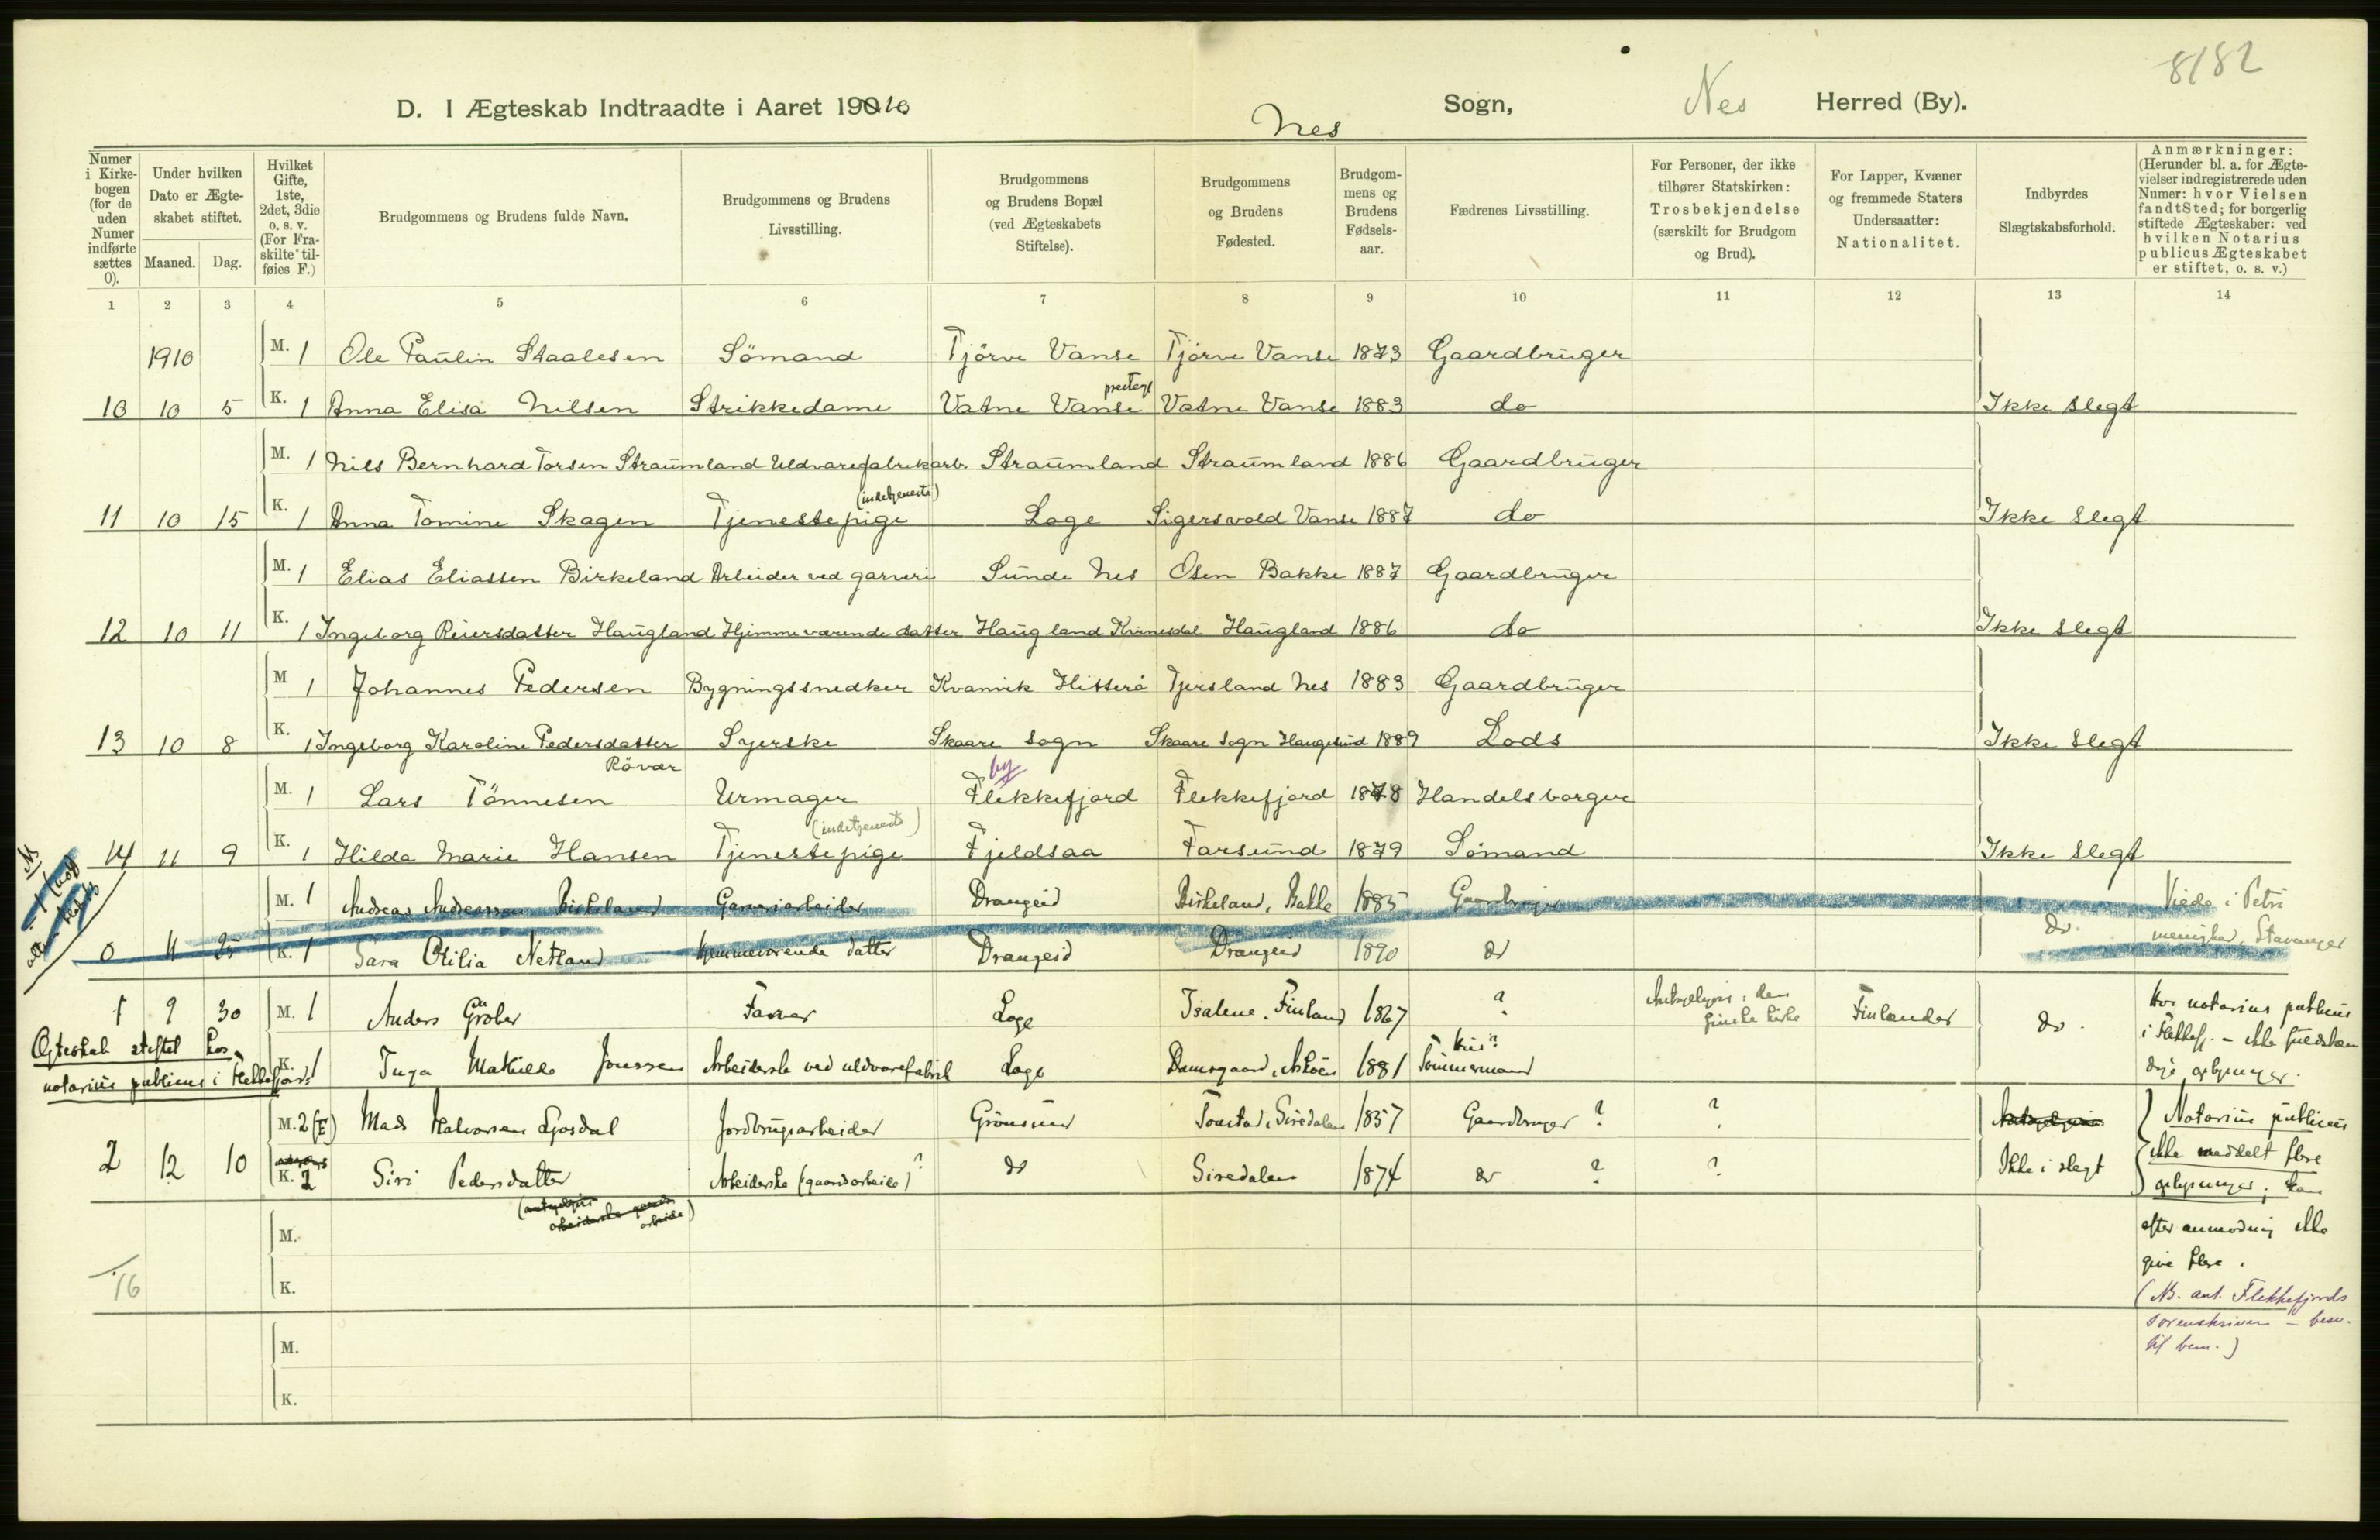 8/82
D. I Ægteskab Indtraadte i Aaret 1910
Nes Sogn, Nes Herred (By).
Numer i Kirkebogen (for de uden Numer indførte sættes 0).
Under hvilken Dato er Ægteskabet stiftet.
Maaned. Dag.
Hvilket Gifte, 1ste, 2det, 3die o. s. v. (For Fraskilte tilføies F.)
Brudgommens og Brudens fulde Navn.
Brudgommens og Brudens Livsstilling.
Brudgommens og Brudens Bopæl (ved Ægteskabets Stiftelse).
Brudgommens og Brudens Fødested.
Brudgommens og Brudens Fødselsaar.
Fædrenes Livsstilling.
For Personer, der ikke tilhører Statskirken: Trosbekjendelse (særskilt for Brudgom og Brud).
For Lapper, Kvæner og fremmede Staters Undersaatter: Nationalitet.
Indbyrdes Slægtskabsforhold.
Anmærkninger: (Herunder bl. a. for Ægtevielser indregistrerede uden Numer: hvor Vielsen fandt Sted; for borgerlig stiftede Ægteskaber: ved hvilken Notarius publicus Ægteskabet er stiftet, o. s. v.)
1 2 3 4 5 6 7 8 9 10 11 12 13 14
1910 M. 1 Ole Paulin Staalesen Sömand Tjörve Vanse Tjörve Vanse 1873 Gaardbruger
10 10 5 K. 1 Anna Elisa Nilsen Strikkedame Vatne Vanse prestegj Vatne Vanse 1883 do Ikke slegt
M. 1 Nils Bernhard Torsen Straumland Uldvarefabrikarb. Straumland Straumland 1886 Gaardbruger
11 10 15 K. 1 Anna Tomine Skagen Tjenestepige (indetjeneste) Loge Sigersvold Vanse 1887 do Ikke slegt
M. 1 Elias Eliassen Birkeland Arbeider ved garveri Sunde Nes Osen Bakke 1887 Gaardbruger
12 10 11 K. 1 Ingeborg Reiersdatter Haugland Hjemmeværende datter Haugland Kvinesdal Haugland 1886 do Ikke slegt
M 1 Johannes Pedersen Bygningssnedker Kvanvik Hitterö Tjersland Nes 1883 Gaardbruger
13 10 8 K. 1 Ingeborg Karoline Pedersdatter Syerske Skaare Sogn Skaare Sogn Haugesund 1889 Lods Ikke slegt
Rövær
M. 1 Lars Tönnesen Urmager Flekkefjord by Flekkefjord 1878 Handelsborger
14 11 9 K. 1 Hilda Marie Hansen Tjenestepige (indetjeneste) Fjeldsaa Farsund 1879 Sömand Ikke slegt
M. 1 Andreas Andreassen Birkeland Garveriarbeider Drangeid Birkeland, Bakke 1885 Gaardbruger Viede i Petri
0 11 25 K. 1 Sara Otilia Netland Hjemmeværende datter Drangeid Drangeid 1890 do do. menighed, Stavanger
1 9 30 M. 1 Anders Gröber Farver Loge Finland 1867 ? den finske kirke Finlænder do. Hos notarius publicus
Egteskab stiftet hos K. 1 Inga Mathilde Jonssen Arbeiderske ved uldvarefabrik Loge Damsgaard, Asköen 1881 Tömmermand i Flekkefj. – ikke fuldstæn
notarius publicus i Flekkefjord: dige oplysninger.
M. 2 (E) Mads Halvorsen Gjosdal Jordbrugsarbeider Grönsund Tonstad, Siredalen 1857 Gaardbruger ? ? Notarius publicus
2 12 10 K. 2 Siri Pedersdatter Arbeiderske (gaardsarbeide) ? do Siredalen 1874 do ? ? Ikke i slegt ikke meddelt flere
oplysninger; kan
M. efter anmodning ikke
16 K. give flere.
(NB. ant. Flekkefjords
sorenskriver – besv.
M. til bem.)
K.